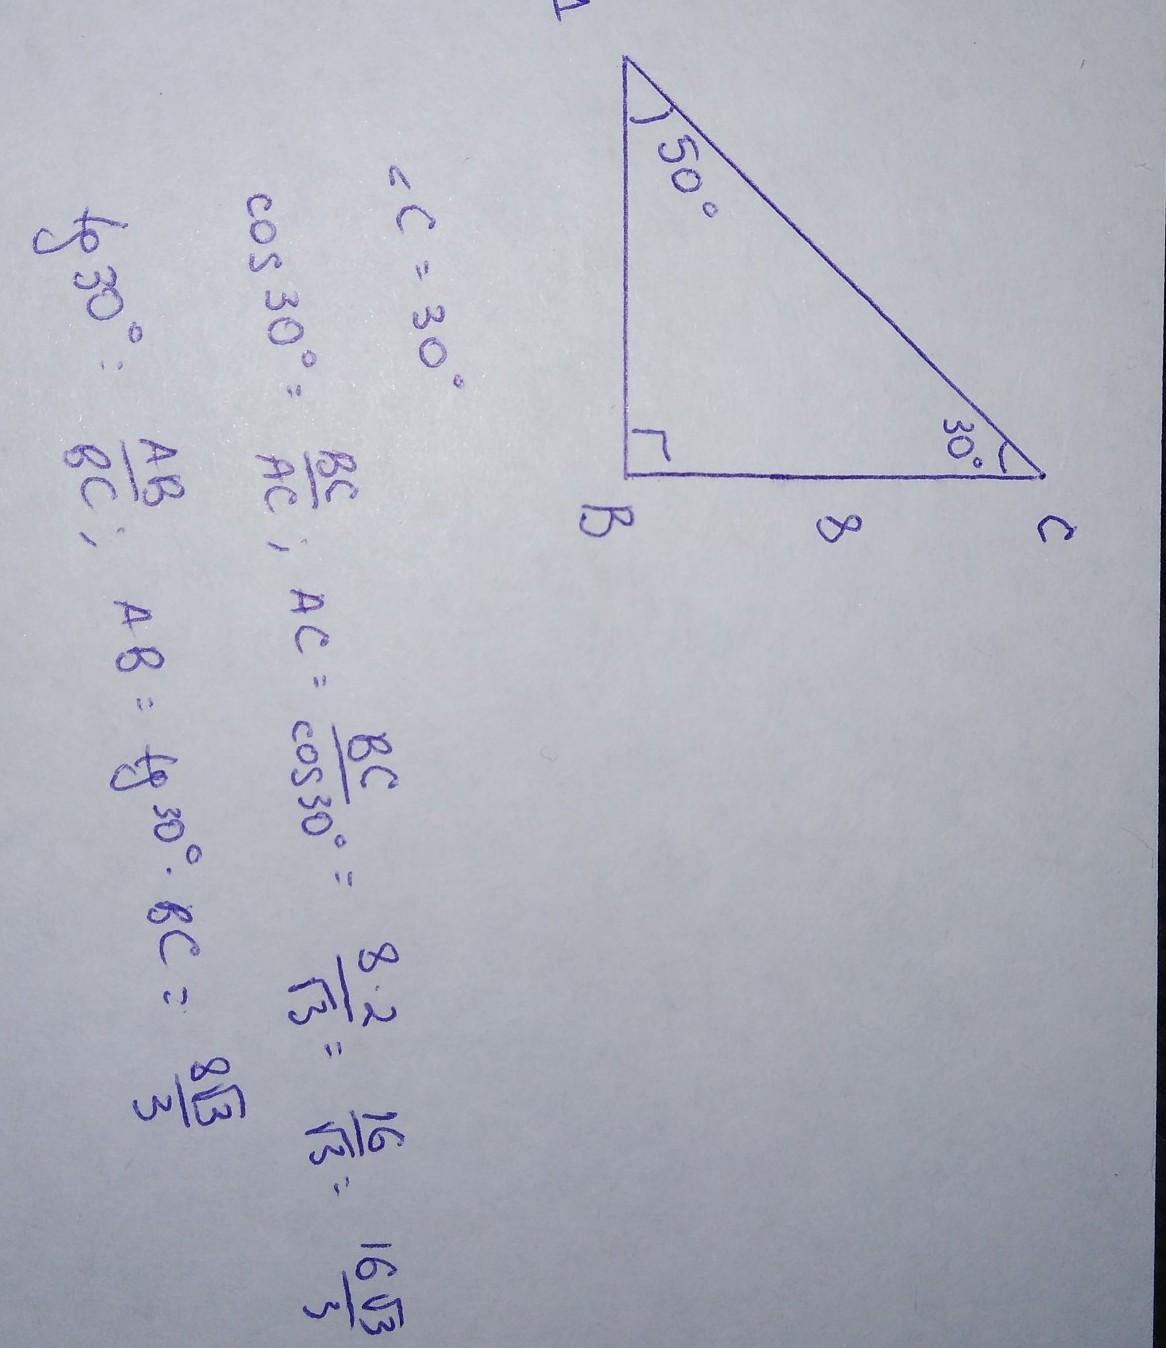 C
30°
8
50°
B
∠C = 30°
cos 30° = BC/AC; AC = BC/cos30° = 8·2/√3 = 16/√3 = 16√3/3
tg 30° = AB/BC; AB = tg 30° · BC = 8√3/3